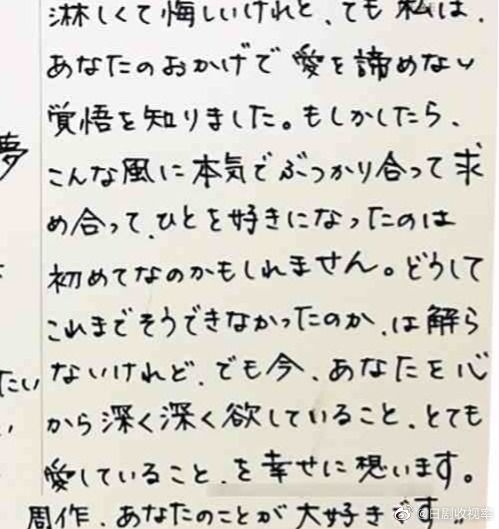 淋しくて悔しいけれど、ても私は、
あなたのおかげで愛を諦めない
覚悟を知りました。もしかしたら、
こんな風に本気でぶつかり合って求
め合って、ひとを好きになったのは
初めてなのかもしれません。どうして
これまでそうできなかったのか、は解ら
ないけれど、でも今、あなたを心
から深く深く欲していること、とても
愛していること、を幸せに想います。
周作、あなたのことが大好きです
夢
たい
@日剧收视率